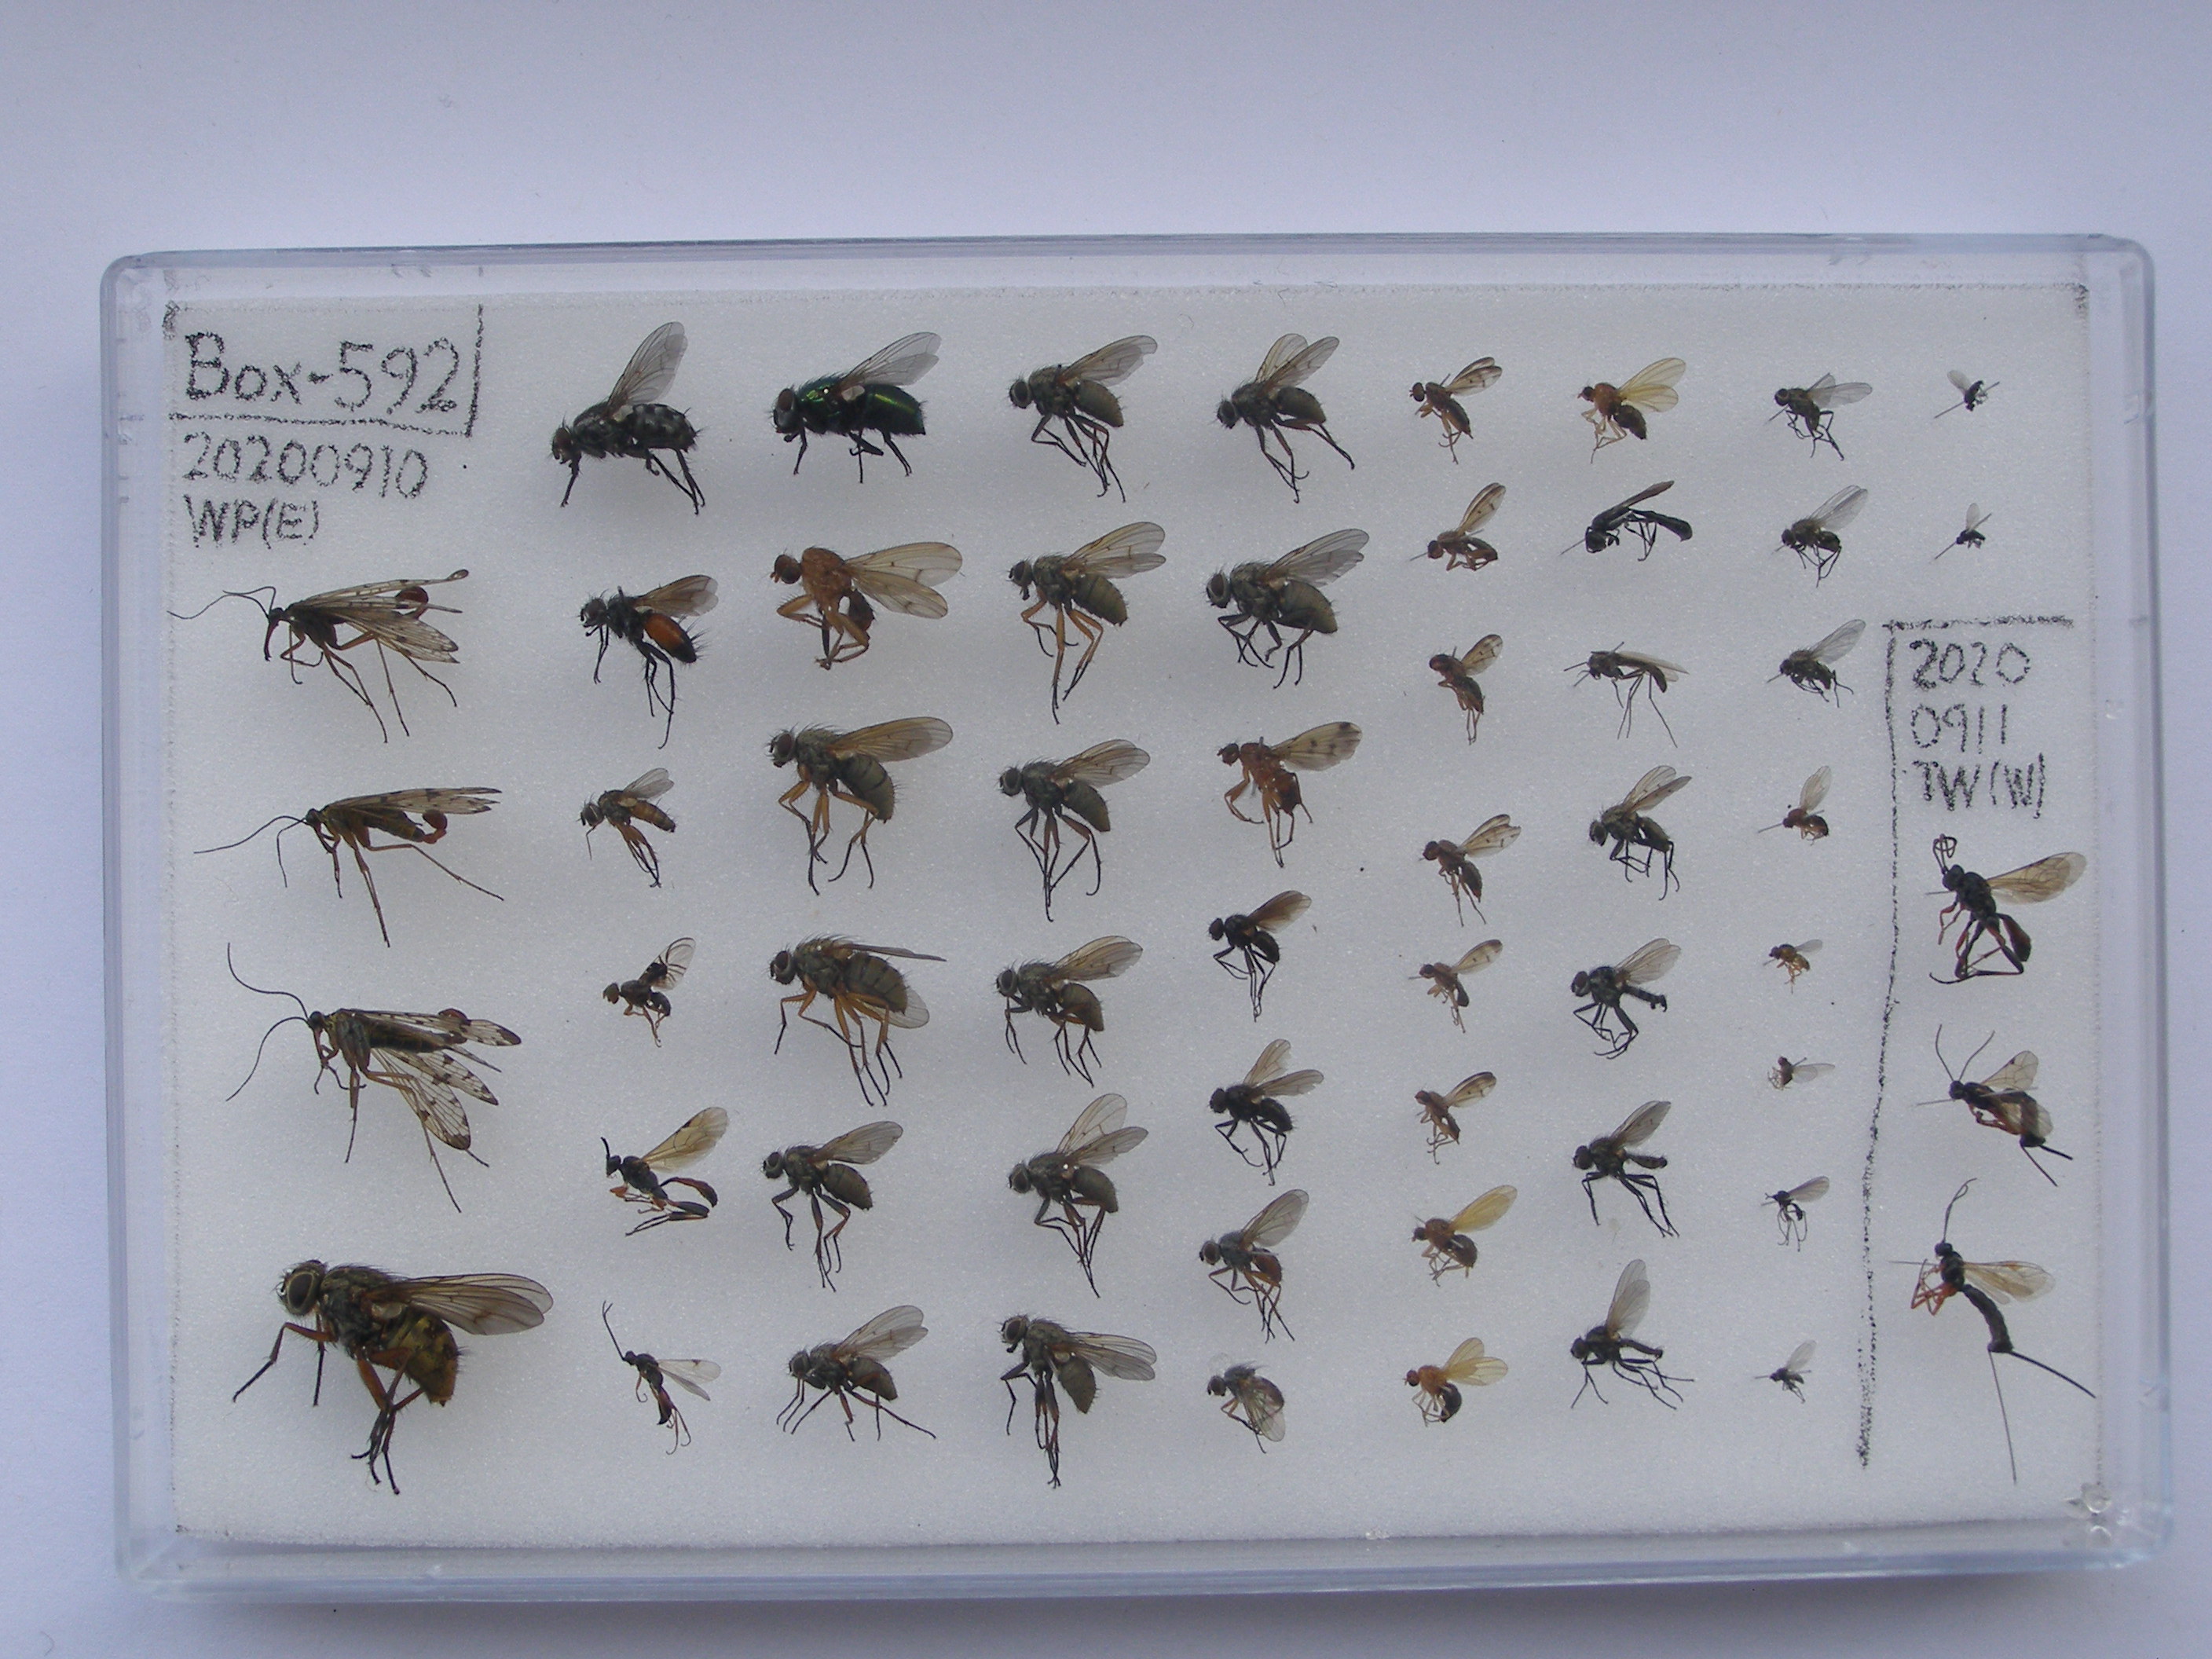 Box-592
20200910
WP(E)
2020
0911
TW(W)